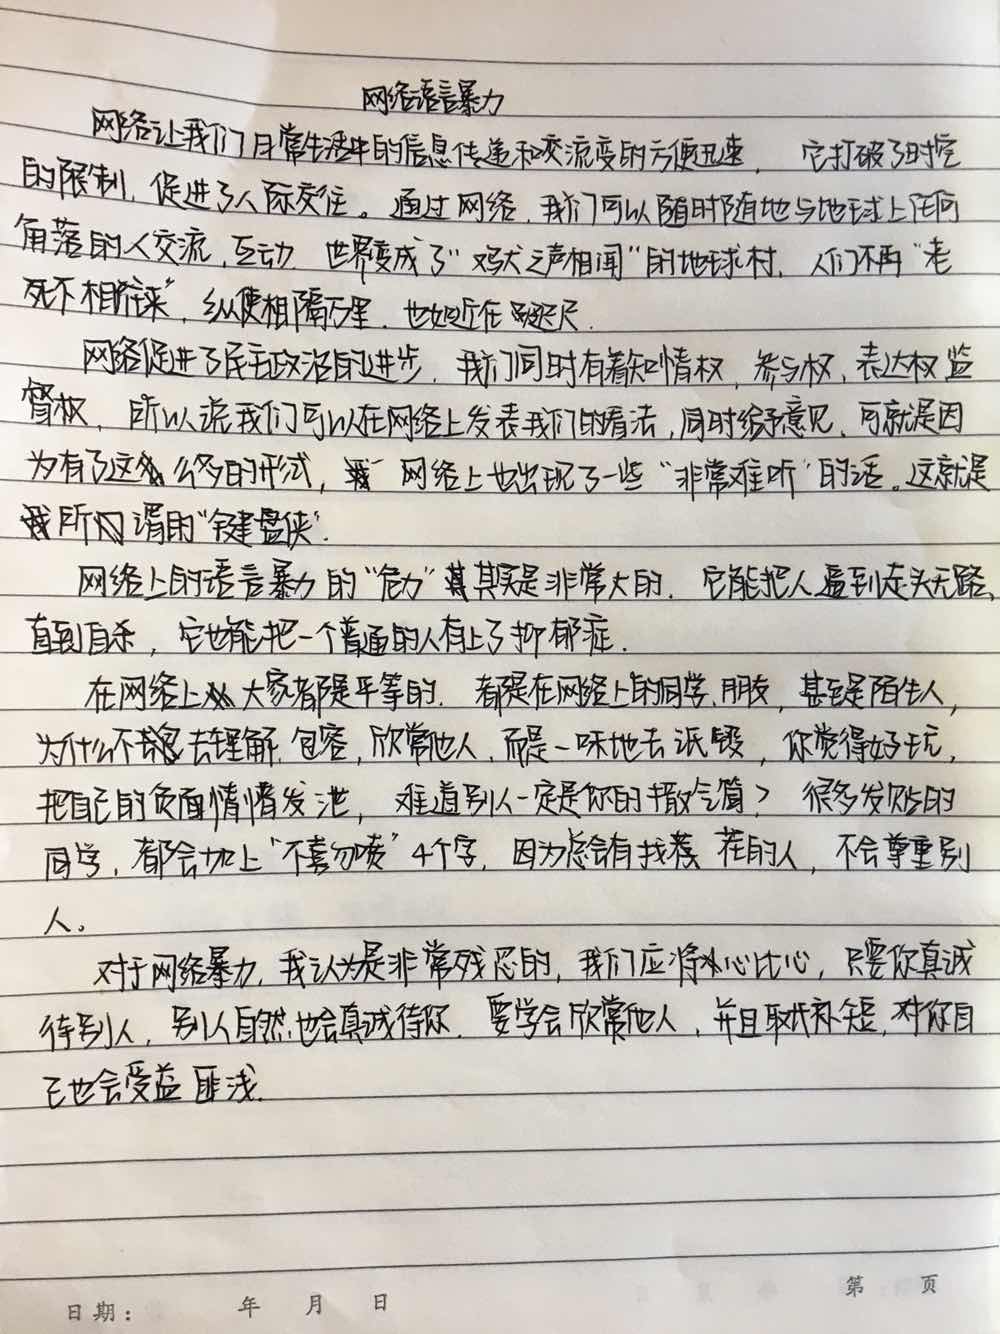 网络语言暴力
网络让我们日常生活中的信息传递和交流变的方便迅速，它打破了时空
的限制，促进了人际交往。通过网络，我们可以随时随地与地球上任何
角落的人交流，互动，世界变成了“鸡犬之声相闻”的地球村，人们不再“老
死不相往来”，纵使相隔万里，也如近在咫尺.
网络促进了民主政治的进步，我们同时有着知情权，参与权、表达权监
督权，所以说我们可以在网络上发表我们的看法，同时给予意见，可就是因
为有了这么多的形式，网络上也出现了一些“非常难听”的话。这就是
所谓的“键盘侠”.
网络上的语言暴力的“危力”其实是非常大的，它能把人逼到走头无路，
直到自杀，它也能把一个普通的人有上了抑郁症.
在网络上大家都是平等的，都是在网络上的同学、朋友，甚至是陌生人，
为什么不去理解、包容，欣常他人，而是一味地去诋毁，你觉得好玩，
把自己的负面情绪发泄，难道别人一定是你的撒气筒？很多发贴的
同学，都会加上“不喜勿喷”4个字，因为总会有找茬的人，不会尊重别
人。
对于网络暴力，我认为是非常残忍的，我们应将心比心，只要你真诚
待别人，别人自然也会真诚待你．要学会欣常他人，并且取长补短，对你自
己也会受益匪浅.
第 页
日期： 年 月 日